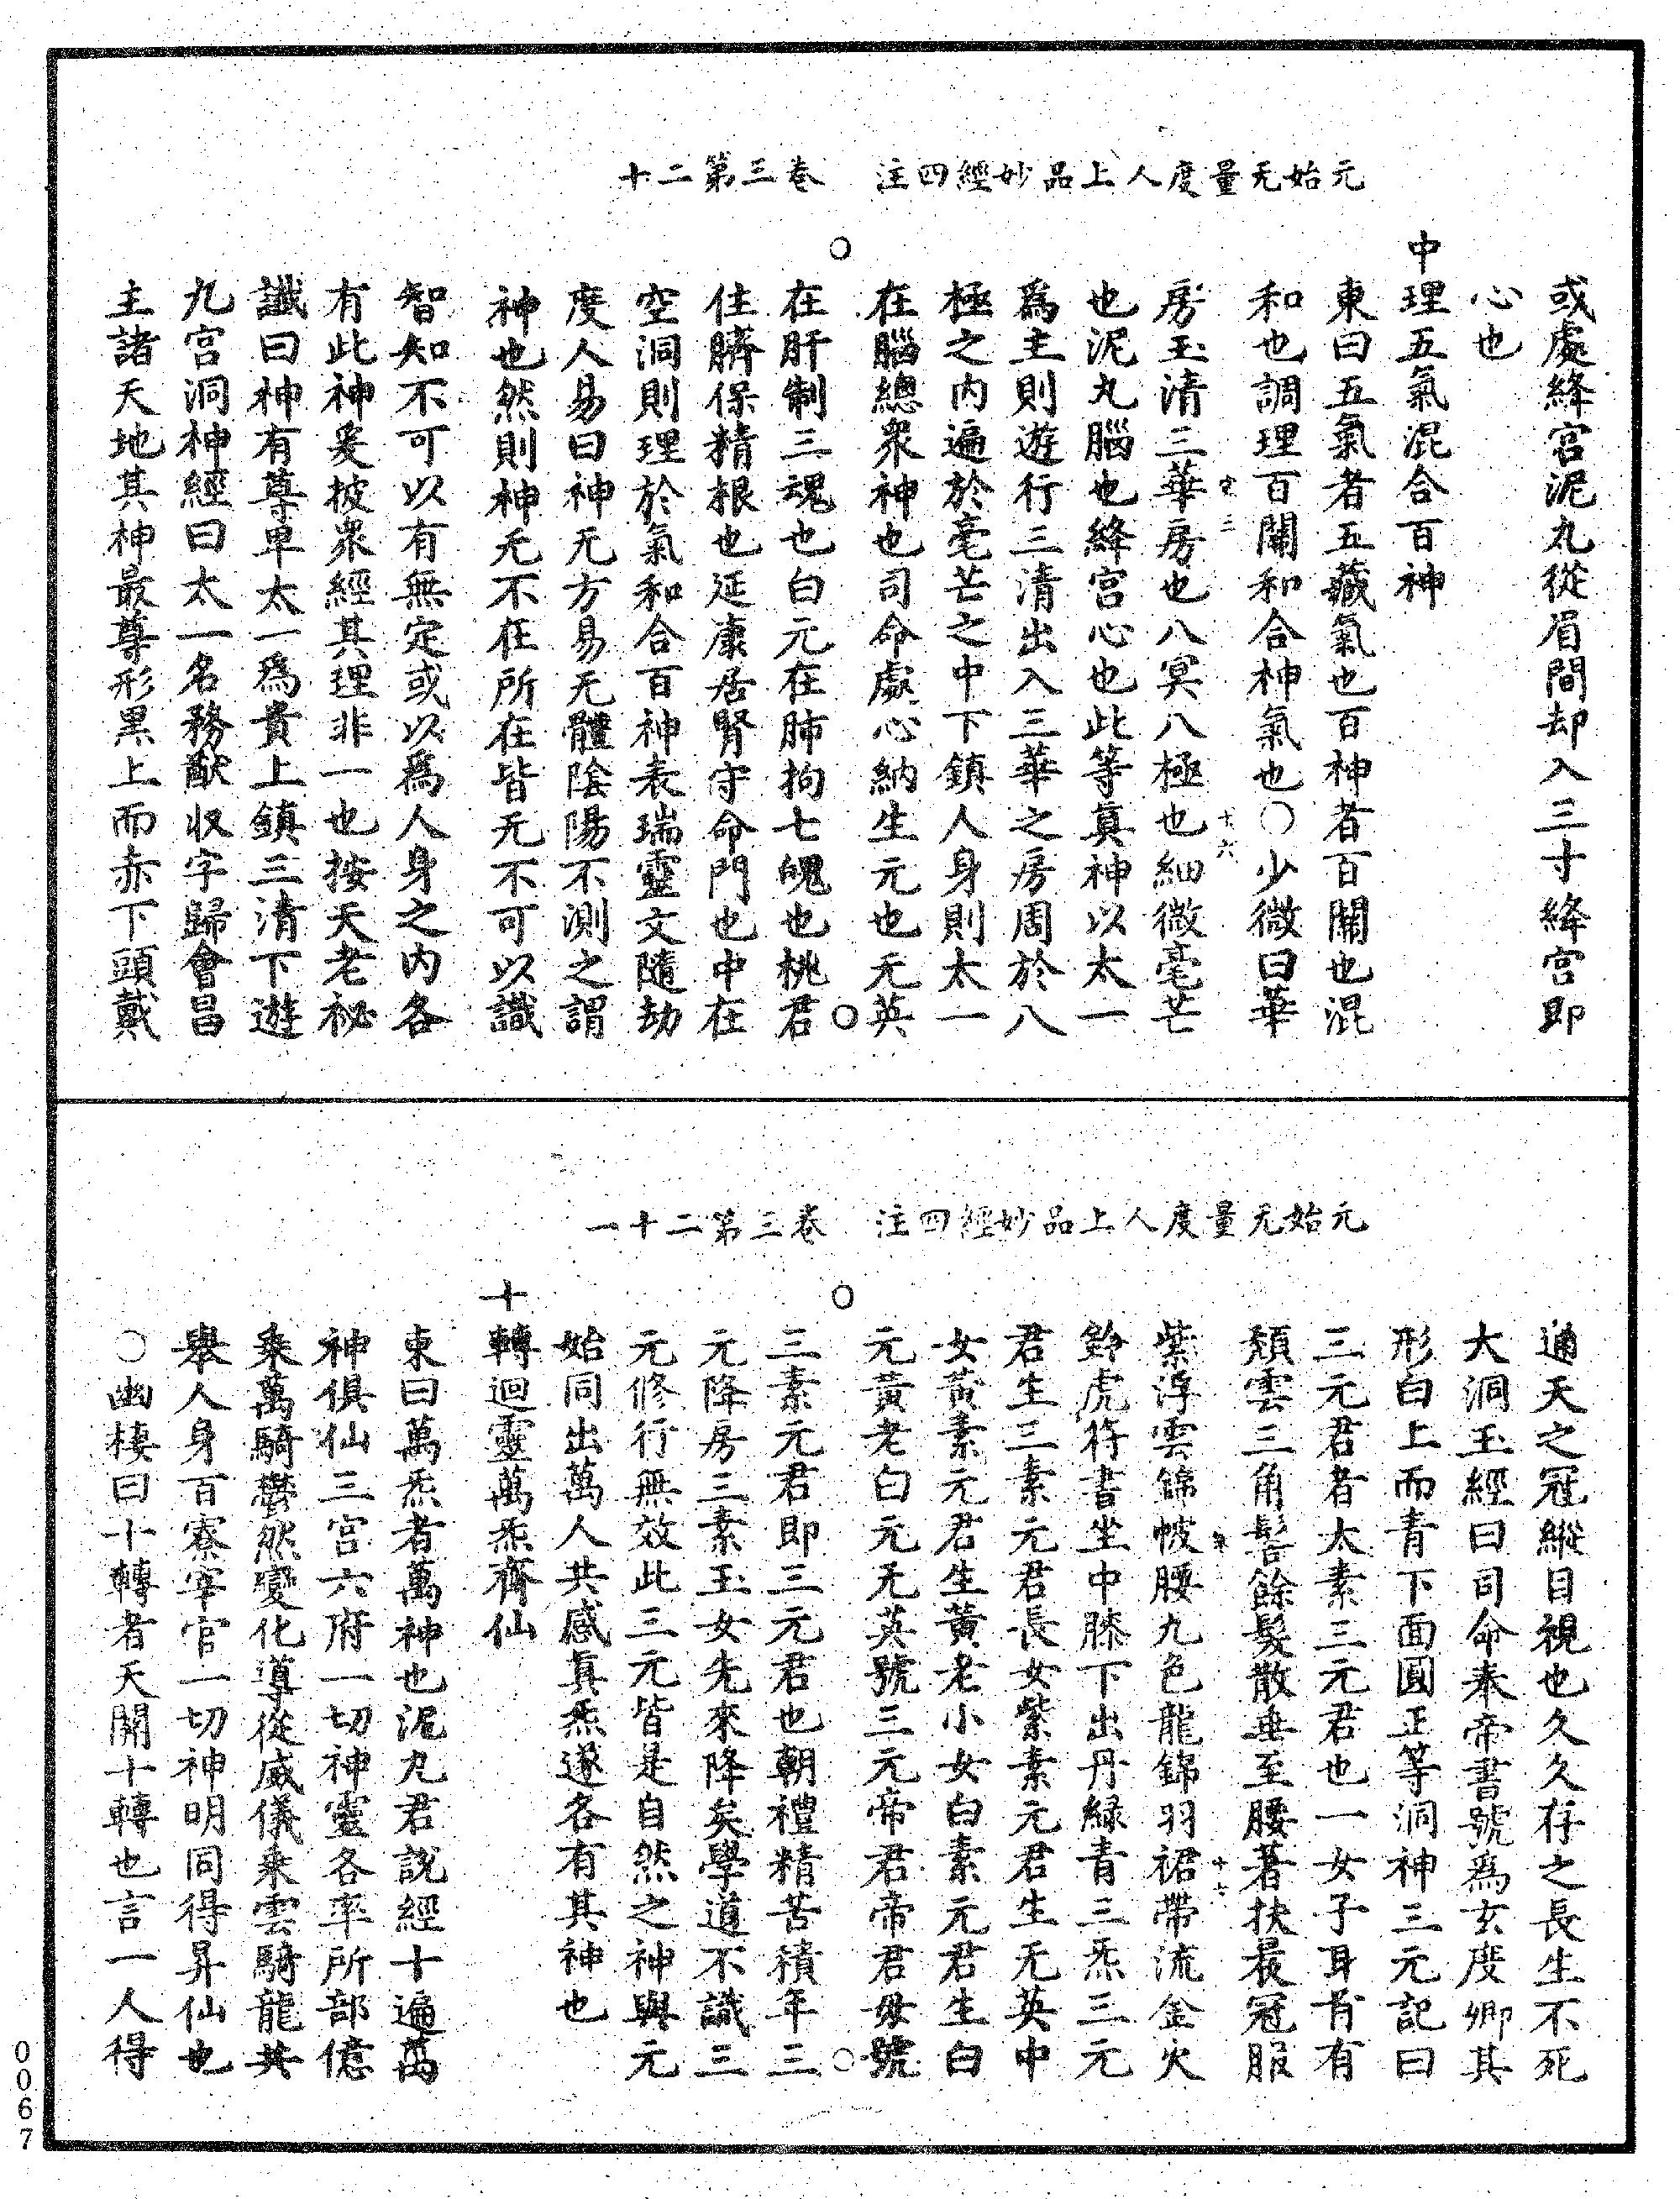 元始无量度人上品妙經四注 卷三第二十
或處絳宮泥丸從眉間却入三寸絳宮即
心也
中理五氣混合百神
東曰五氣者五藏氣也百神者百關也混
和也調理百關和合神氣也○少微曰華
房玉清三華房也八冥八極也細微毫芒
也泥丸腦也絳宮心也此等真神以太一
爲主則遊行三清出入三華之房周於八
極之內遍於毫芒之中下鎮人身則太一
在腦總衆神也司命處心納生元也无英
在肝制三魂也白元在肺拘七魄也桃君
住臍保精根也延康居腎守命門也中在
空洞則理於氣和合百神表瑞靈文隨劫
度人易曰神无方易无體陰陽不測之謂
神也然則神无不在所在皆无不可以識
智知不可以有無定或以爲人身之內各
有此神爰披衆經其理非一也按天老祕
讖曰神有尊卑太一爲貴上鎮三清下遊
九宮洞神經曰太一名務猷收字歸會昌
主諸天地其神最尊形黑上而赤下頭戴
元始无量度人上品妙經四注 卷三第二十一
通天之冠縱目視也久久存之長生不死
大洞玉經曰司命奉帝書號爲玄度卿其
形白上而青下面圓正等洞神三元記曰
三元君者太素三元君也一女子耳首有
頹雲三角髻餘髮散垂至腰著扶晨冠服
紫浮雲錦帔腰九色龍錦羽裙帶流金火
鈴虎符書坐中膝下出丹綠青三炁三元
君生三素元君長女紫素元君生无英中
女黃素元君生黃老小女白素元君生白
元黃老白元无英號三元帝君帝君母號
三素元君即三元君也朝禮精苦積年三
元降房三素玉女先來降矣學道不識三
元修行無效此三元皆是自然之神與元
始同出萬人共感真炁遂各有其神也
十轉迴靈萬炁齊仙
東曰萬炁者萬神也泥丸君說經十遍萬
神俱仙三宮六府一切神靈各率所部億
乘萬騎鬱然變化導從威儀乘雲騎龍共
舉人身百寮宰官一切神明同得昇仙也
○幽棲曰十轉者天開十轉也言一人得
0067